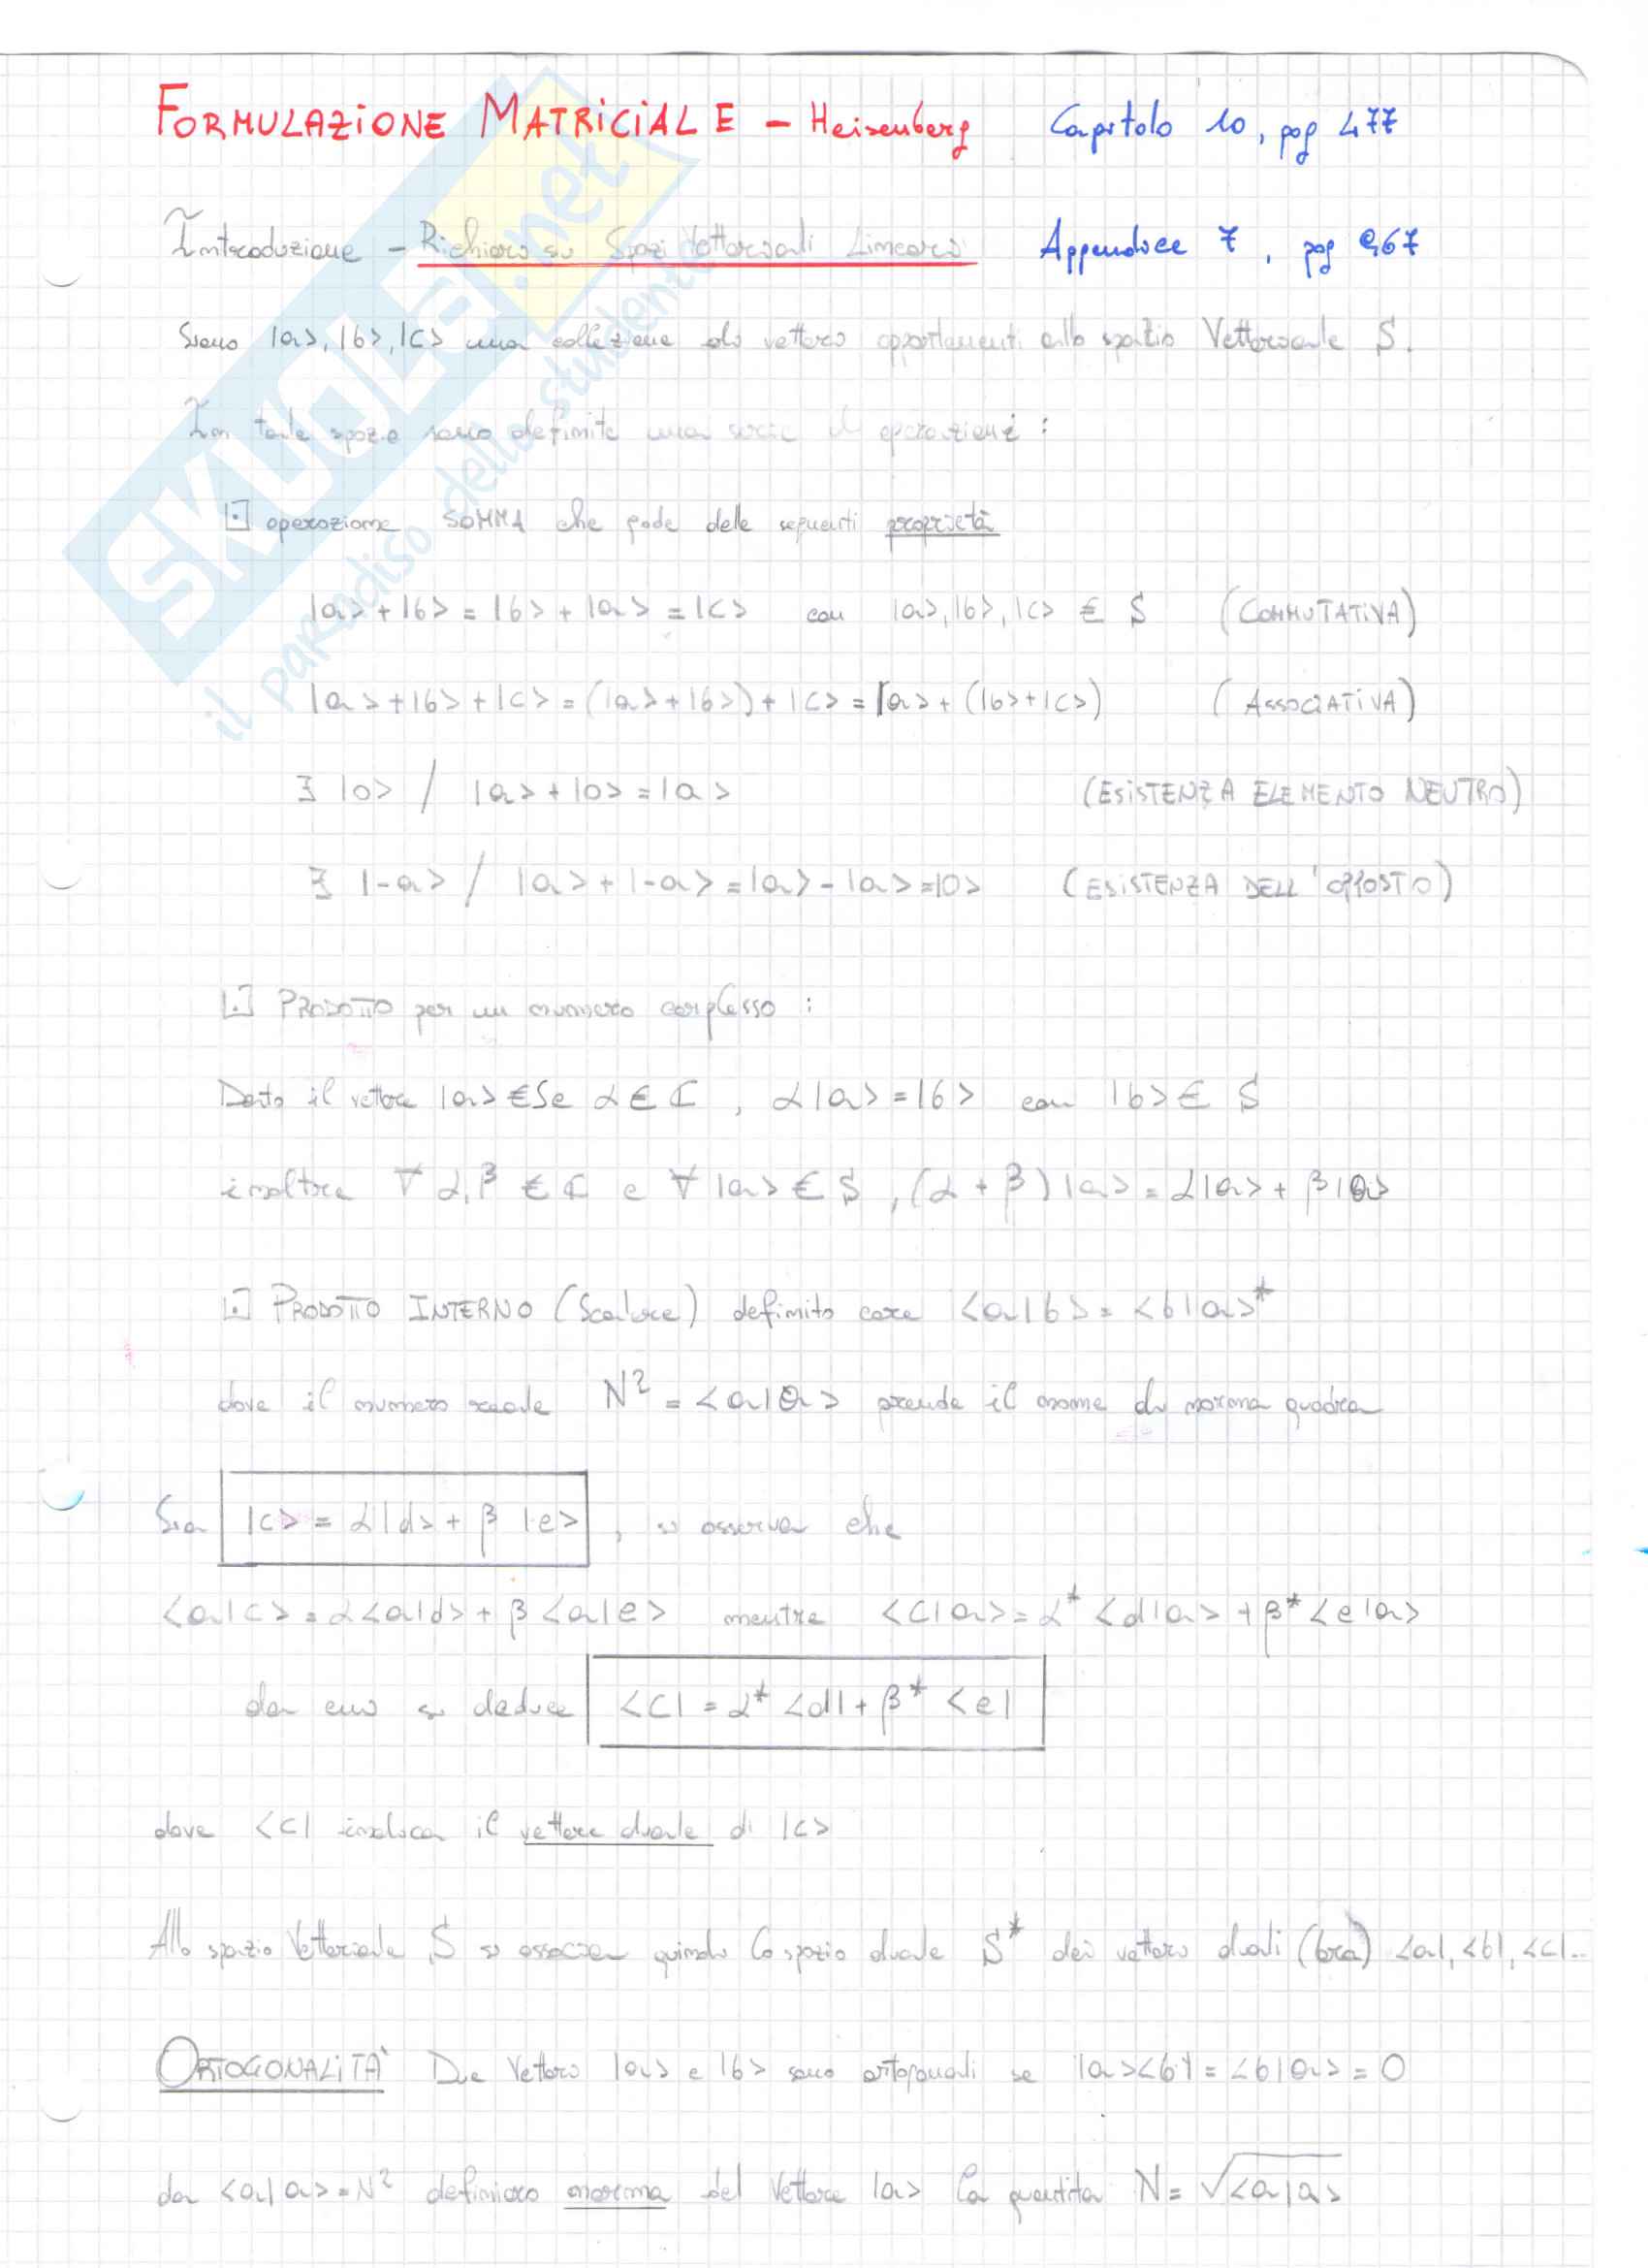 FORMULAZIONE MATRICIALE - Heisenberg Capitolo 10, pag 477
Introduzione - Richiami su Spazi Vettoriali Lineari Appendice 7, pag 967
Siano |a>, |b>, |c> una collezione di vettori appartenenti allo spazio Vettoriale S.
In tale spazio sono definite una serie di operazioni:
⊡ operazione SOMMA che gode delle seguenti proprietà
|a> + |b> = |b> + |a> = |c> con |a>, |b>, |c> ∈ S (COMMUTATIVA)
|a> + |b> + |c> = (|a> + |b>) + |c> = |a> + (|b> + |c>) (ASSOCIATIVA)
∃ |0> / |a> + |0> = |a> (ESISTENZA ELEMENTO NEUTRO)
∃ |-a> / |a> + |-a> = |a> - |a> = |0> (ESISTENZA DELL'OPPOSTO)
⊡ PRODOTTO per un numero complesso:
Dato il vettore |a> ∈ S e α ∈ ℂ, α|a> = |b> con |b> ∈ S
inoltre ∀ α, β ∈ ℂ e ∀ |a> ∈ S, (α + β)|a> = α|a> + β|a>
⊡ PRODOTTO INTERNO (Scalare) definito come <a|b> = <b|a>*
dove il numero reale N² = <a|a> prende il nome di norma quadra
Sia |c> = α|d> + β|e>, si osserva che
<a|c> = α<a|d> + β<a|e> mentre <c|a> = α*<d|a> + β*<e|a>
da cui si deduce <c| = α*<d| + β*<e|
dove <c| indica il vettore duale di |c>
Allo spazio Vettoriale S si associa quindi lo spazio duale S* dei vettori duali (bra) <a|, <b|, <c|...
ORTOGONALITÀ Due Vettori |a> e |b> sono ortogonali se |a><b| = <b|a> = 0
da <a|a> = N² definiamo norma del Vettore |a> la quantità N = √<a|a>
SKUOLA.net
il paradiso dello studente